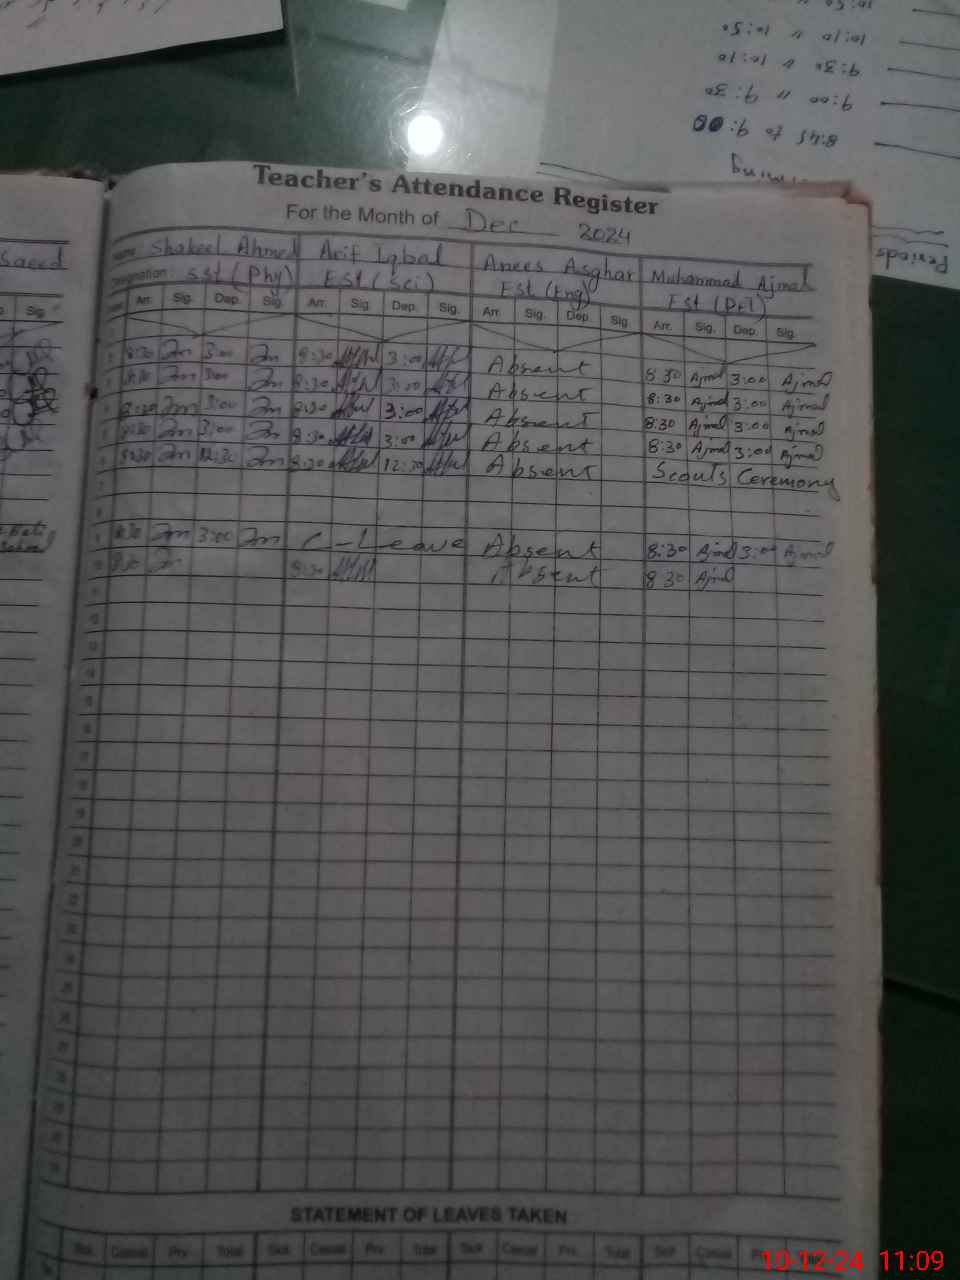 10:10 " 10:50
9:30 " 10:10
9:00 " 9:30
8:45 to 9:00
Periods
Teacher's Attendance Register
For the Month of Dec 2024
Saeed
Name Shakeel Ahmed Arif Iqbal Anees Asghar Muhammad Ajmal
Designation: SST (Phy) EST (Sci) EST (Eng) EST
Sig. Arr. Sig. Dep. Sig. Arr. Sig. Dep. Sig. Arr. Sig. Dep. Sig. Arr. Sig. Dep. Sig.
1
2 8:30 3:00 8:30 3:00 Absent 8:30 Ajmal 3:00 Ajmal
3 8:30 3:00 8:30 3:00 Absent 8:30 Ajmal 3:00 Ajmal
4 8:30 3:00 8:30 3:00 Absent 8:30 Ajmal 3:00 Ajmal
5 8:30 3:00 8:30 3:00 Absent 8:30 Ajmal 3:00 Ajmal
6 8:30 12:30 8:30 12:30 Absent Scouts Ceremony
7
8
9 8:30 3:00 C-Leave Absent 8:30 Ajmal 3:00 Ajmal
10 8:30 8:30 Absent 8:30 Ajmal
11
12
13
14
15
16
17
18
19
20
21
22
23
24
25
26
27
28
29
30
31
STATEMENT OF LEAVES TAKEN
Sick Casual Prv. Total Sick Casual Prv. Total Sick Casual Prv. Total Sick Casual
10-12-24 11:09